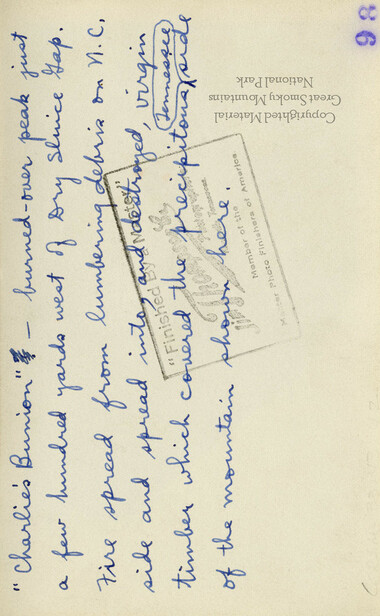 "Charlie's Bunion" — burned-over peak just
a few hundred yards west of Dry Sluice Gap.
Fire spread from lumbering debris on N.C.
side and spread into, and destroyed, virgin
timber which covered the precipitous Tennessee side
of the mountain shown here.
"Finished By a Master"
Thompson's
Member of the
Master Photo Finishers of America
Copyrighted Material
Great Smoky Mountains
National Park
98